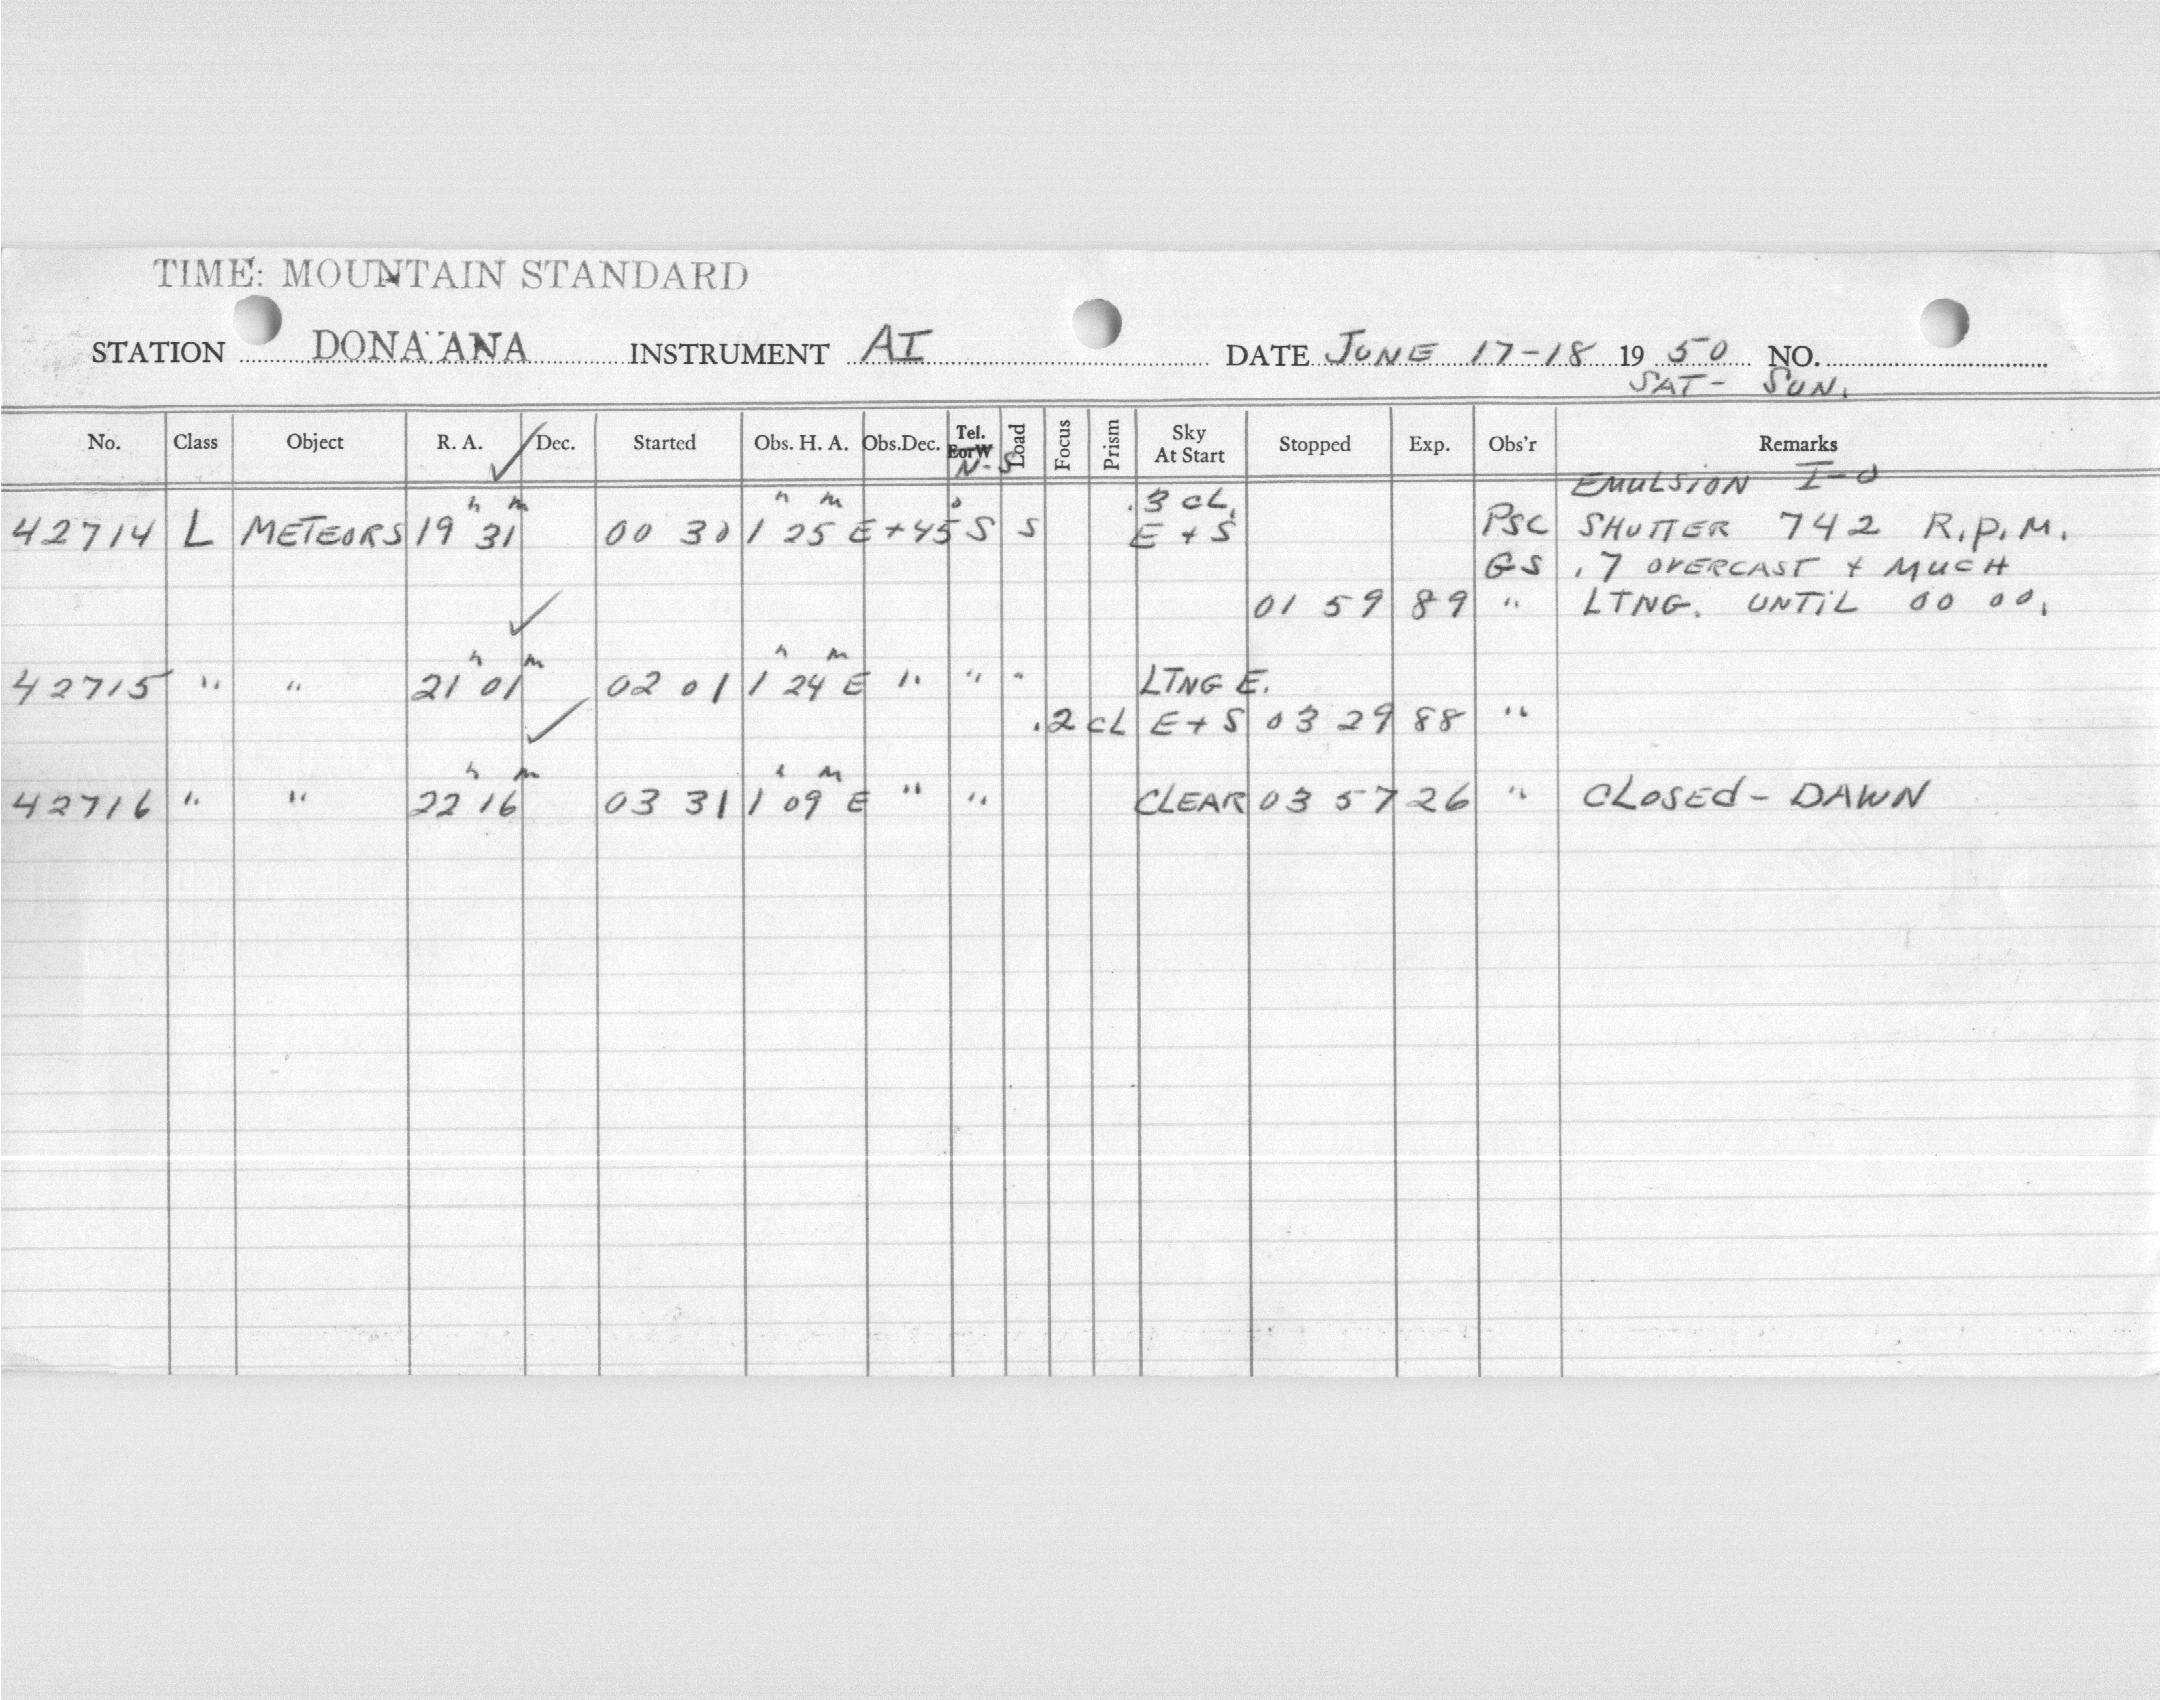 TIME: MOUNTAIN STANDARD
STATION DONA ANA INSTRUMENT AI DATE JUNE 17-18 19 50 NO.
SAT- SUN.
No. Class Object R. A. Dec. Started Obs. H. A. Obs.Dec. Tel. EorW N-S Load Focus Prism Sky At Start Stopped Exp. Obs'r Remarks
EMULSION I-O
h m h m o .3 CL.
42714 L METEORS 19 31 00 30 1 25 E +45 S S E + S PSC SHUTTER 742 R.P.M.
GS .7 OVERCAST + MUCH
01 59 89 " LTNG. UNTIL 00 00.
h m h m
42715 " " 21 01 02 01 1 24 E " " " LTNG E.
.2 CL E + S 03 29 88 "
h m h m
42716 " " 22 16 03 31 1 09 E " " CLEAR 03 57 26 " CLOSED - DAWN